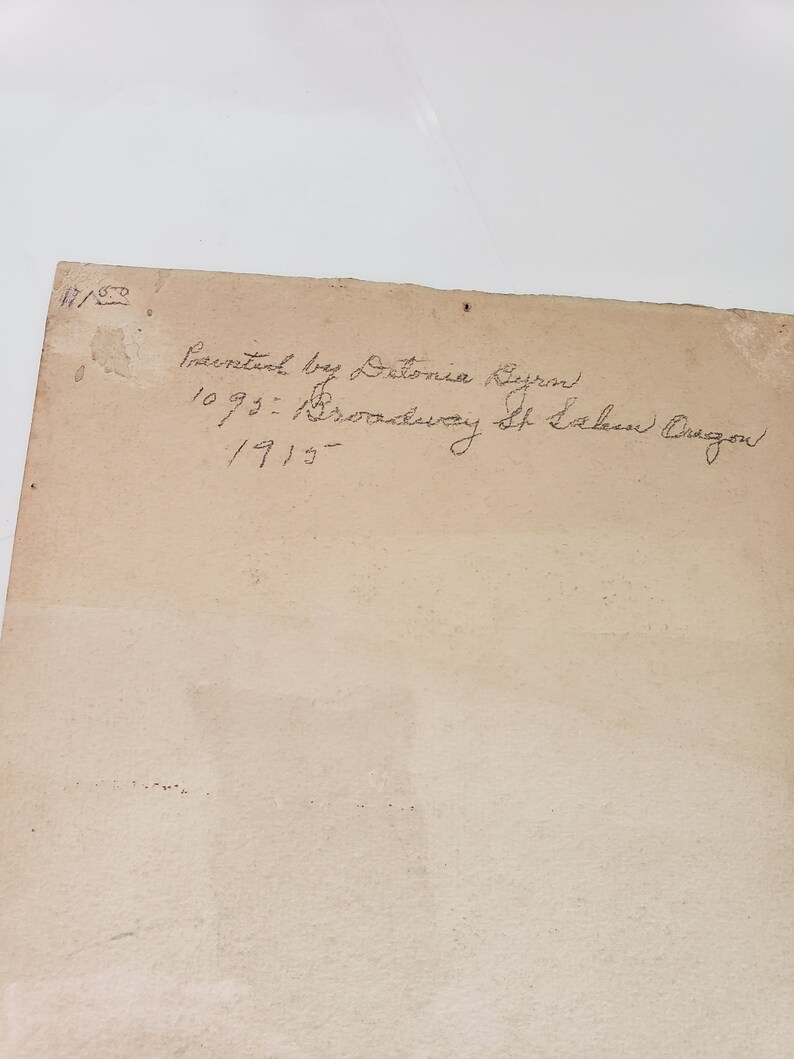 17/50
Painted by Detonia Byrn
1095- Broadway St Salem Oregon
1915